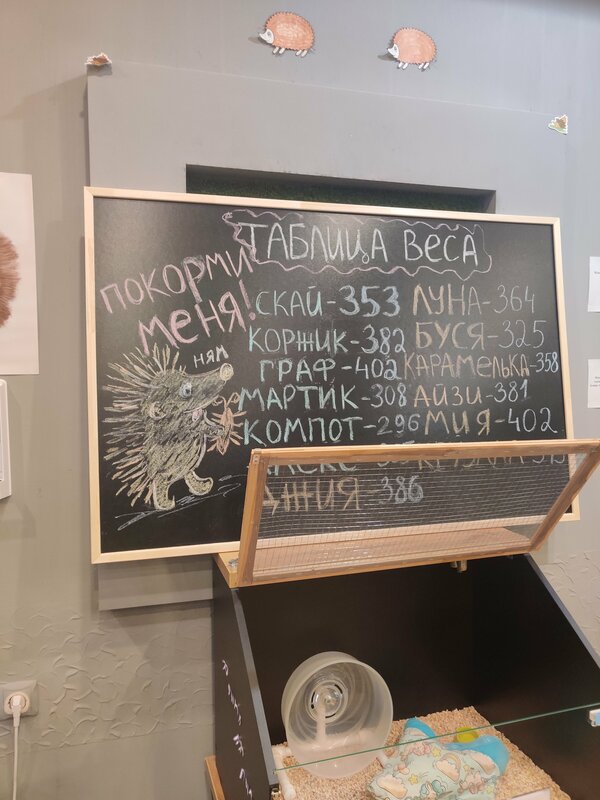 ТАБЛИЦА ВЕСА
ПОКОРМИ
МЕНЯ!
НЯМ
СКАЙ-353 ЛУНА-364
КОРЖИК-382 БУСЯ-325
ГРАФ-402 КАРАМЕЛЬКА-358
МАРТИК-308 АЙЗИ-381
КОМПОТ-296 МИЯ-402
ДЖИЯ-386